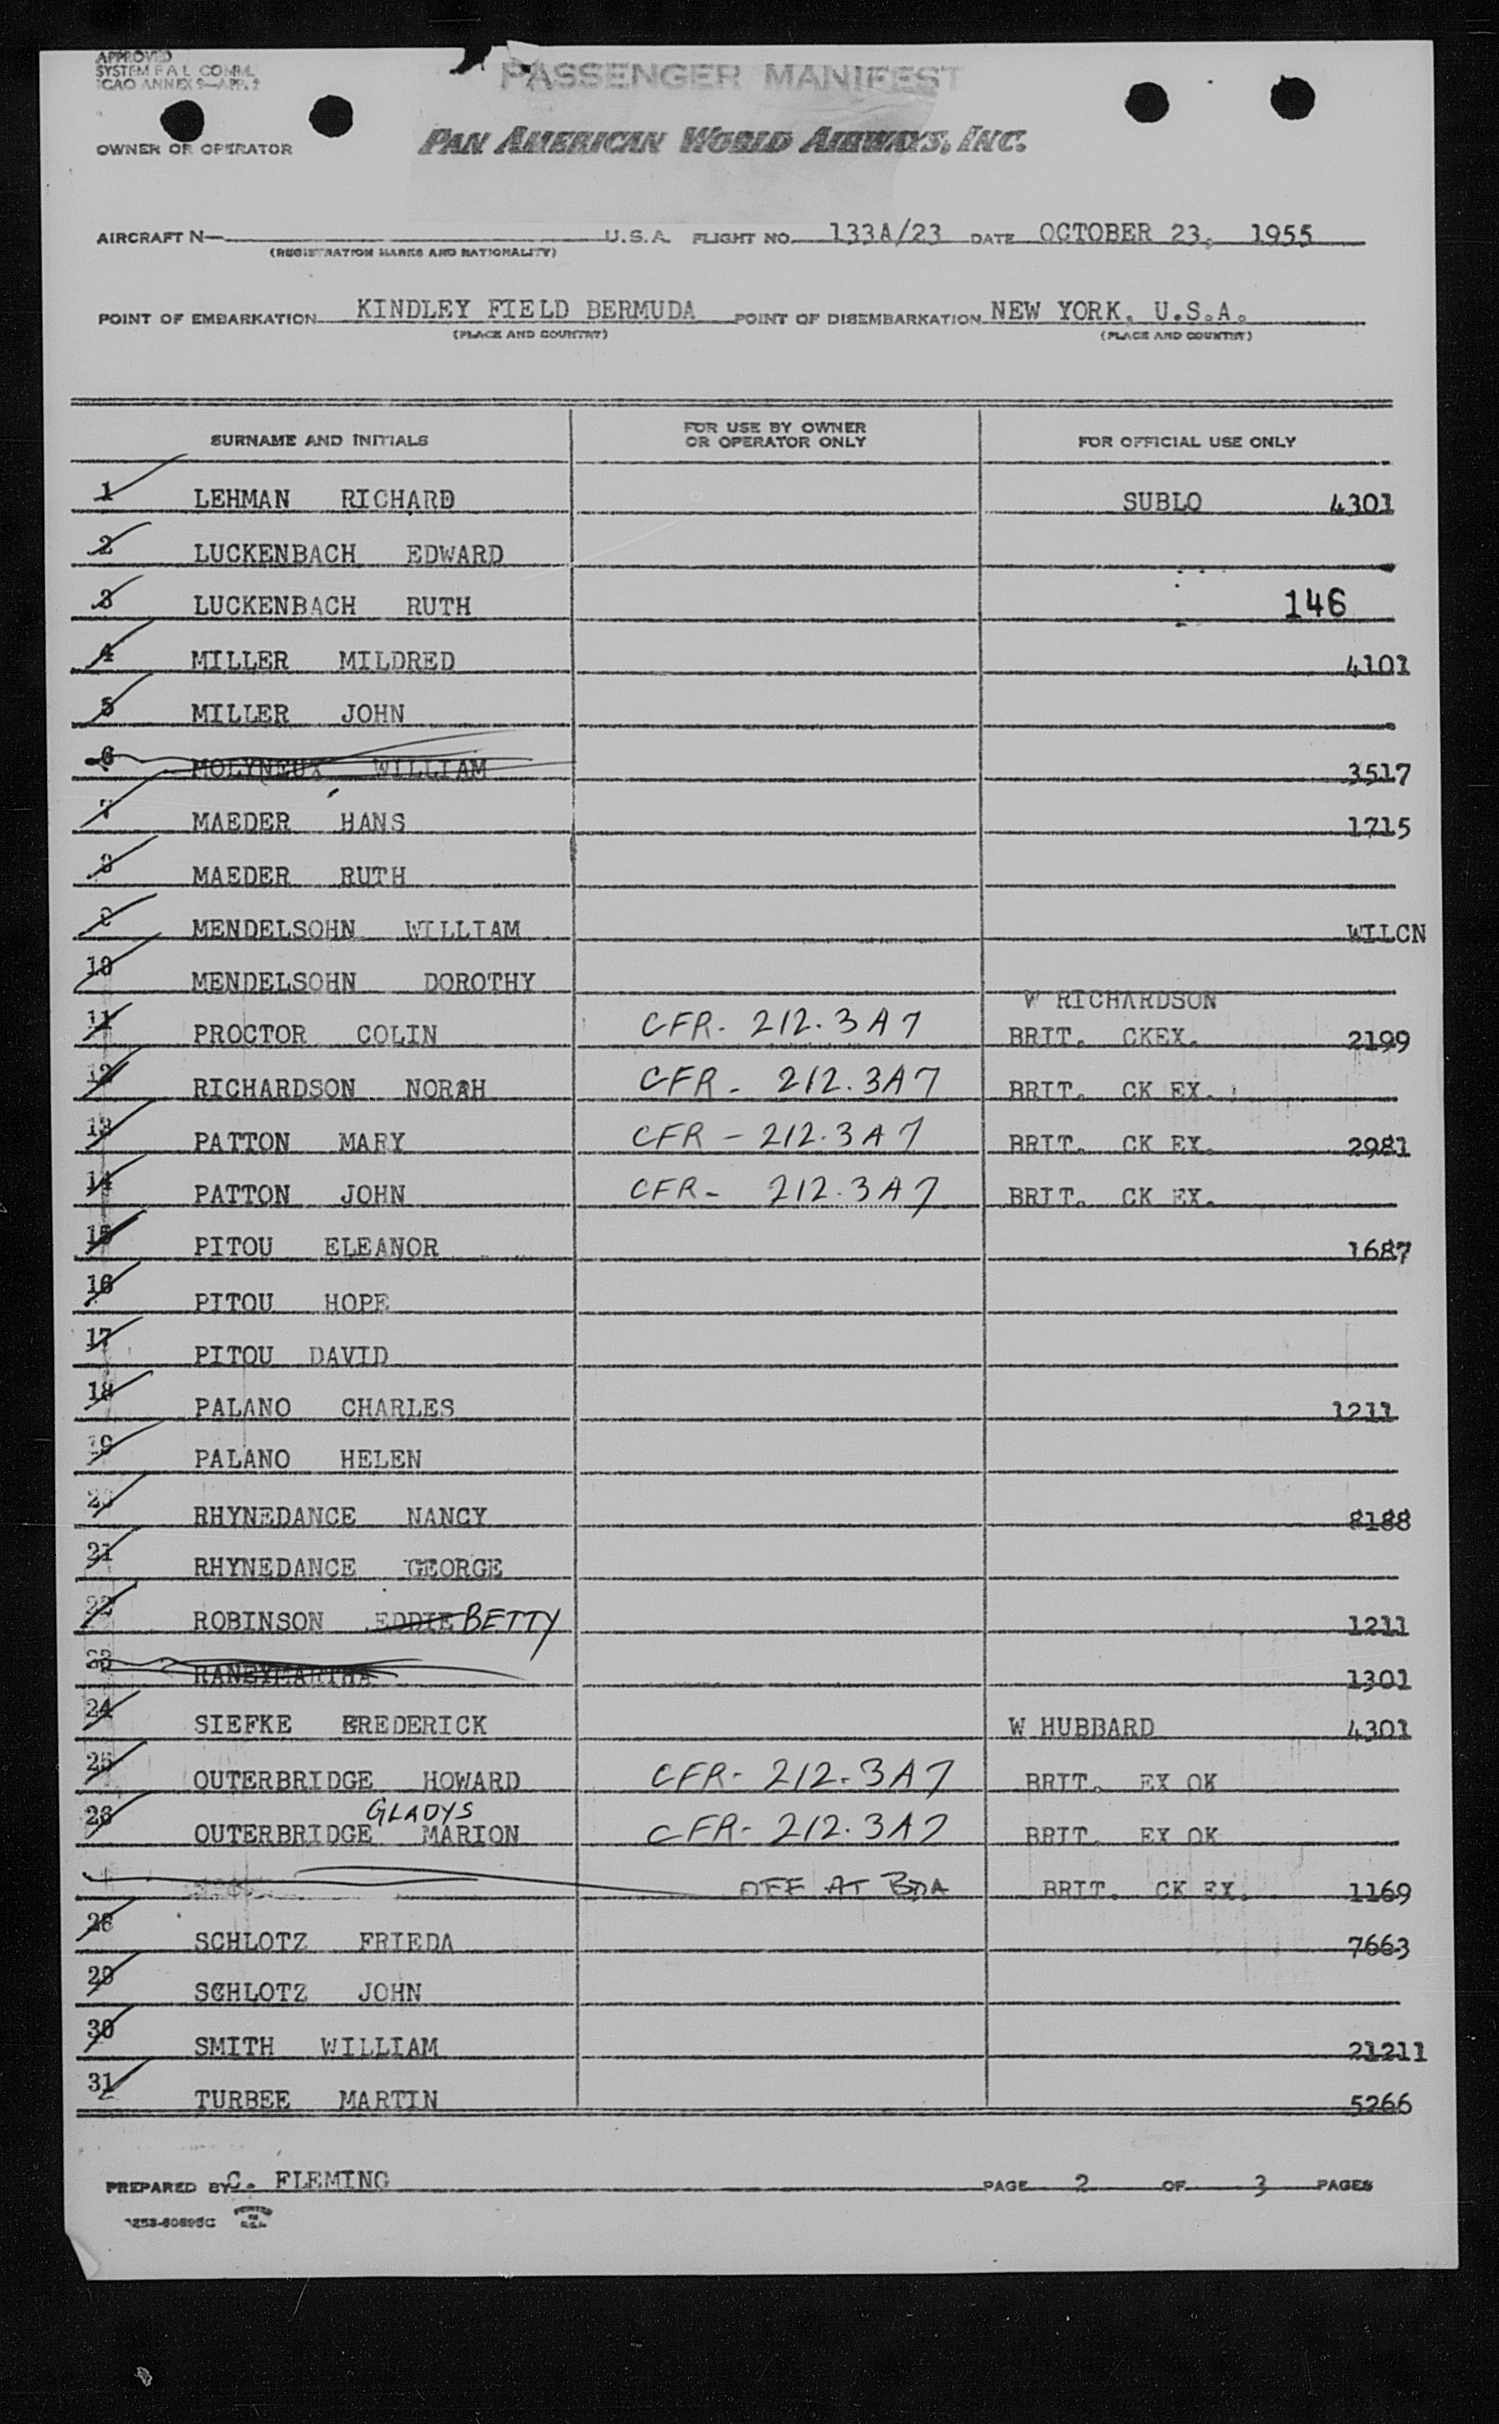 APPROVED
SYSTEM F A L COMM.
ICAO ANNEX 9—APP. 2
PASSENGER MANIFEST
OWNER OR OPERATOR
PAN AMERICAN WORLD AIRWAYS, INC.
AIRCRAFT N— U.S.A. FLIGHT NO. 133A/23 DATE OCTOBER 23, 1955
(REGISTRATION MARKS AND NATIONALITY)
POINT OF EMBARKATION KINDLEY FIELD BERMUDA POINT OF DISEMBARKATION NEW YORK, U.S.A.
(PLACE AND COUNTRY) (PLACE AND COUNTRY)
SURNAME AND INITIALS FOR USE BY OWNER OR OPERATOR ONLY FOR OFFICIAL USE ONLY
1 LEHMAN RICHARD SUBLO 4301
2 LUCKENBACH EDWARD
3 LUCKENBACH RUTH 146
4 MILLER MILDRED 4101
5 MILLER JOHN
6 MOLYNEUX WILLIAM 3517
7 MAEDER HANS 1715
8 MAEDER RUTH
9 MENDELSOHN WILLIAM WILCN
10 MENDELSOHN DOROTHY
W RICHARDSON
11 PROCTOR COLIN CFR- 212.3A7 BRIT. CKEX. 2199
12 RICHARDSON NORAH CFR- 212.3A7 BRIT. CK EX.
13 PATTON MARY CFR- 212.3A7 BRIT. CK EX. 2981
14 PATTON JOHN CFR- 212.3A7 BRIT. CK EX.
15 PITOU ELEANOR 1687
16 PITOU HOPE
17 PITOU DAVID
18 PALANO CHARLES 1211
19 PALANO HELEN
20 RHYNEDANCE NANCY 8188
21 RHYNEDANCE GEORGE
22 ROBINSON EDDIE BETTY 1211
23 RANEYMARTHA 1301
24 SIEFKE FREDERICK W HUBBARD 4301
25 OUTERBRIDGE HOWARD CFR- 212.3A7 BRIT. EX OK
GLADYS
26 OUTERBRIDGE MARION CFR- 212.3A7 BRIT. EX OK
OFF AT BDA BRIT. CK EX. 1169
28 SCHLOTZ FRIEDA 7663
29 SCHLOTZ JOHN
30 SMITH WILLIAM 21211
31 TURBEE MARTIN 5266
PREPARED BY C. FLEMING PAGE 2 OF 3 PAGES
PRINTED IN U.S.A.